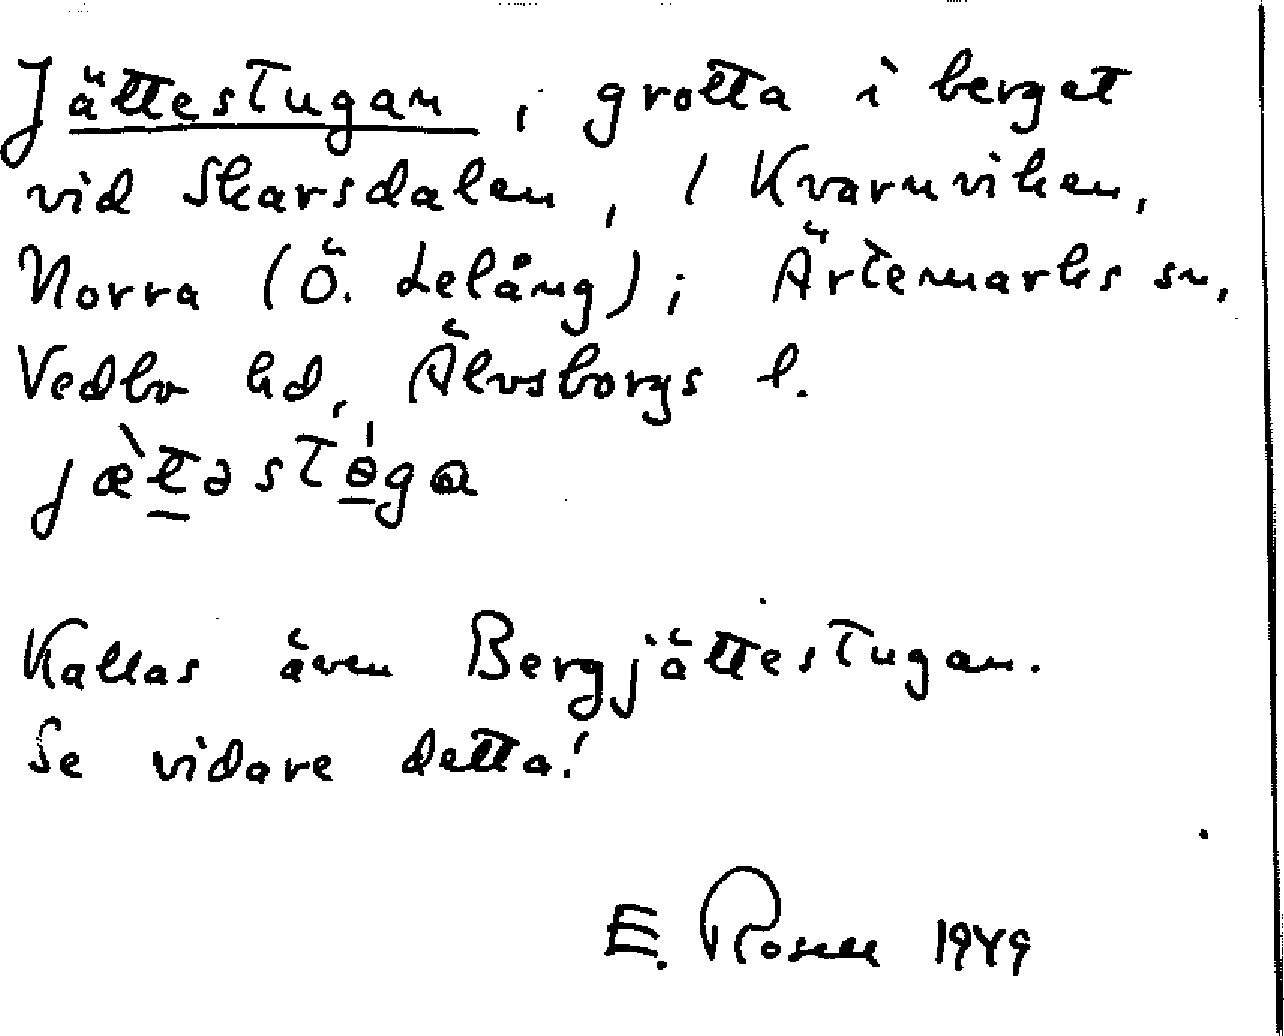 Jättestugan, grotta i berget
vid Skarsdalen, / Kvarnviken,
Norra (Ö. Lelång); Ärtemarks sn,
Vedbo hd, Älvsborgs l.
jæ̀t̲əstɵ̲́ga
Kallas även Bergjättestugan.
Se vidare detta!
E. Rosell 1949